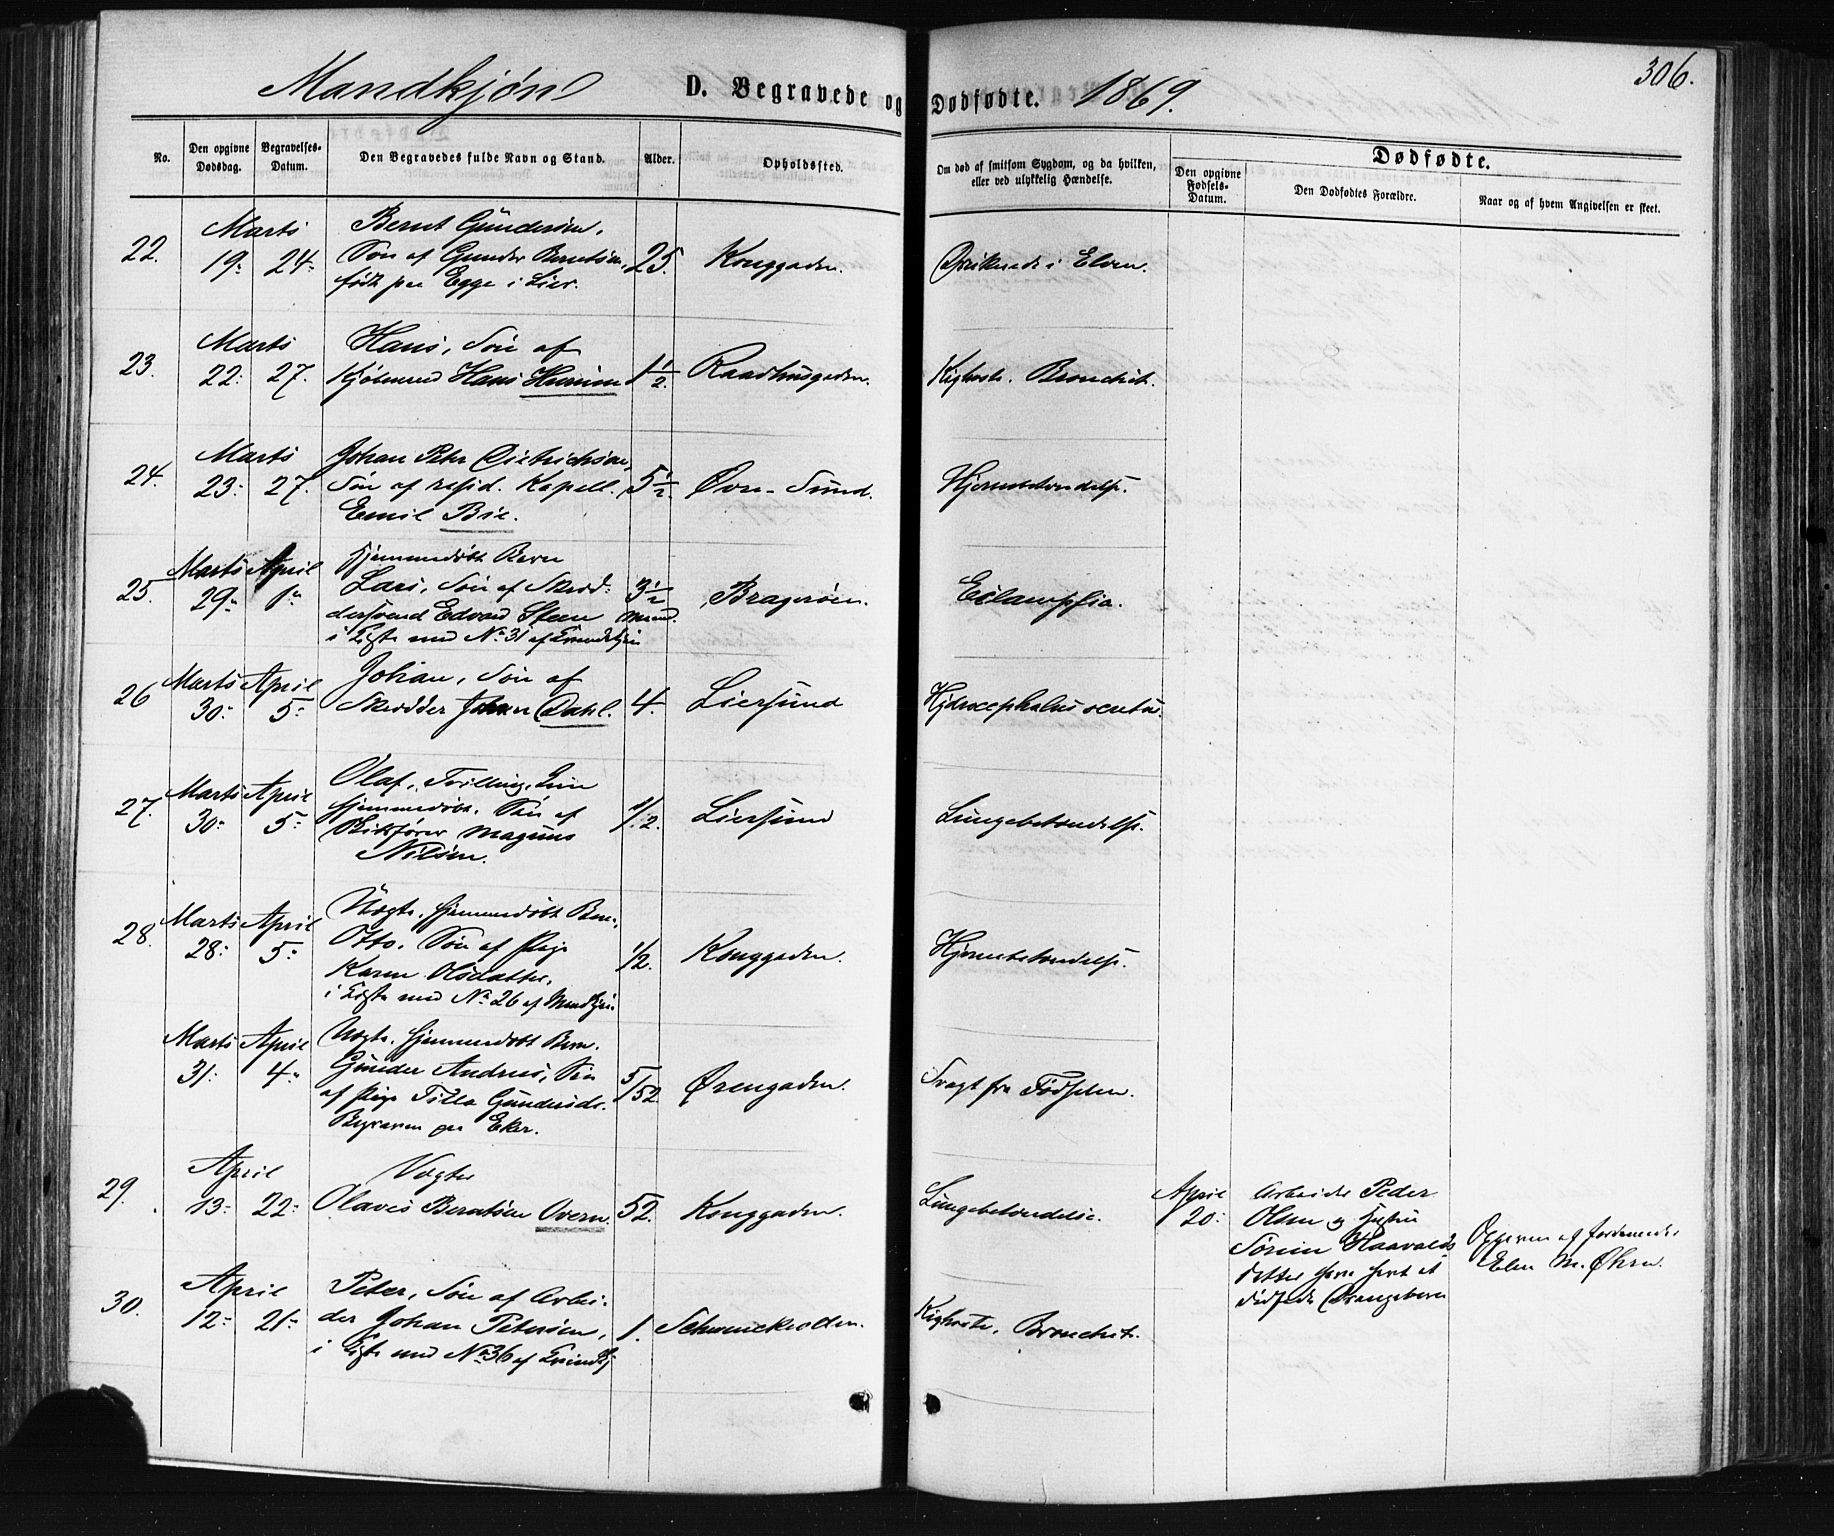 306.
Mandkjøn D. Begravede og Dødfødte. 1869.
No. Den opgivne Dødsdag. Begravelses-Datum. Den Begravedes fulde Navn og Stand. Alder. Opholdssted. Om død af smitsom Sygdom, og da hvilken, eller ved ulykkelig Hændelse. Dødfødte.
Den opgivne Fødsels-Datum. Den Dødfødtes Forældre. Naar og af hvem Angivelsen er skeet.
Marts Bernt Gundersøn,
22. 19. 24. Søn af Gunder Berntsøn, 25. Konggaden. Druknede i Elven.
født paa Egge i Lier.
Marts Hans, Søn af
23. 22. 27. Kjøbmand Hans 1 1/2. Raadhusgaden. Kighoste. Bronchit.
Marts Johan Peter Dietrichson,
24. 23. 27. Søn af resid. Kapell. 5 1/2. Øvre-Sund. Hjernebetændelse.
Emil Bie.
Marts April hjemmedøbt Barn
25. 29. 1. Lars, Søn af Skræd- 3 1/2 Bragerøen. Eclampsia.
dersvend Edvard Steen Maaned.
i Kiste med No 31 af Kvindekjøn
Marts April Johan, Søn af
26 30. 5. Skrædder Johan Dahl. 4. Liersund Hydrocephalus acutus.
Marts April Olaf, Tvilling,
27. 30. 5. hjemmedøbt. Søn af 1/12. Liersund Lungebetændelse.
Magnus
Nilsøn.
Marts April Uægte, hjemmedøbt Barn
28. 28. 5. Otto, Søn af Pige 1/2. Konggaden. Hjernebetændelse.
Karen Olsdatter,
i Kiste med No 26 af Mandkjøn
Marts April Uægte, hjemmedøbt Barn.
31. 4. Gunder Andreas, Søn 5/52 Ørengaden. Svagt fra Fødselen.
af Pige Gundersd.
Begraven paa Eker.
April Vægter
29. 13. 22. Olaves Berntsen Overn. 52. Konggaden. Lungebetændelse.
April Arbeider Peder
20. Olsen og Hustru
Haavolds-
datter have havt et
dødfødt Drengebarn
Opgiven af Jordemoder
Elen M. Øhrn.
April Peter, Søn af Arbei-
30. 12. 21. der Johan Petersen, 1. Schwenckvolden. Kighoste, Bronchit.
i Kiste med No 36 af Kvindekj